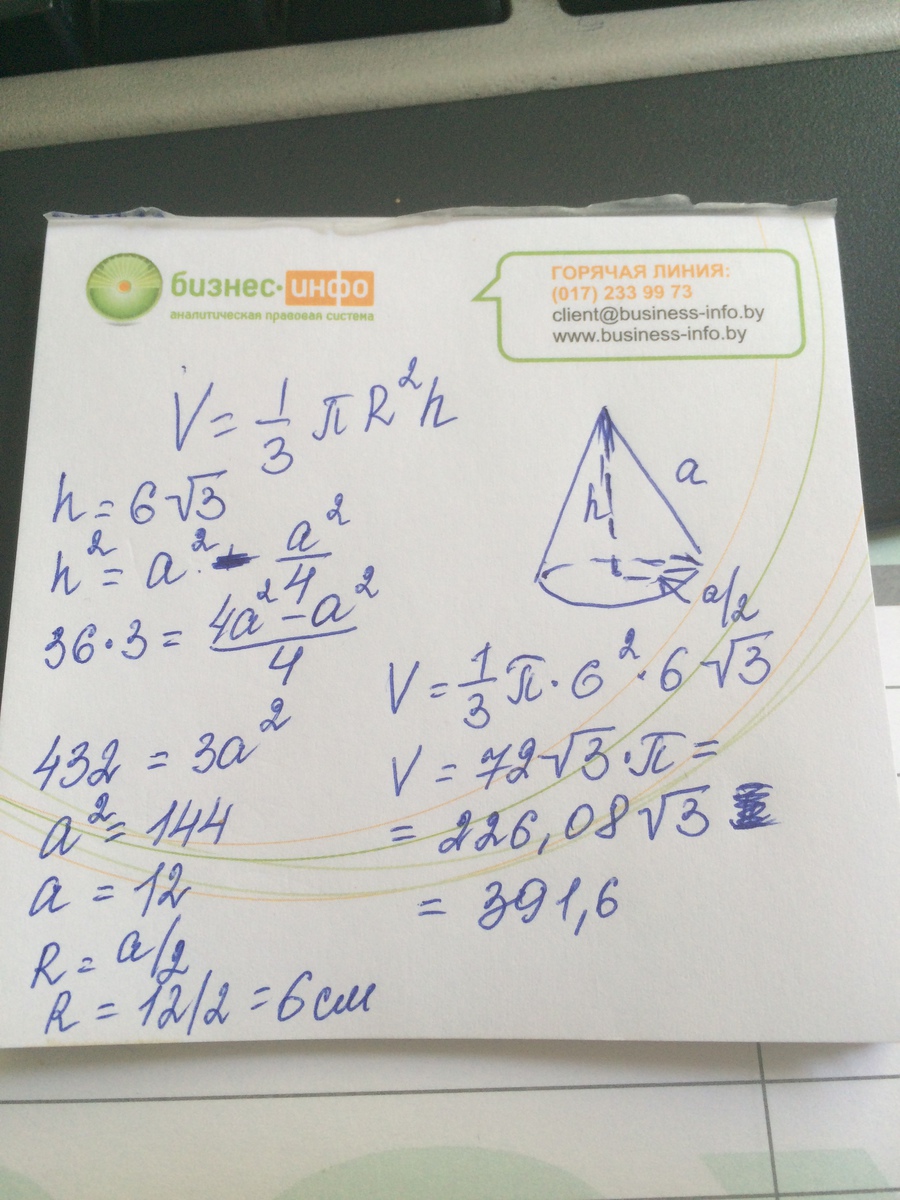 бизнес·инфо
аналитическая правовая система
ГОРЯЧАЯ ЛИНИЯ:
(017) 233 99 73
client@business-info.by
www.business-info.by
V = 1/3 π R² h
h = 6√3
h² = a² - a²/4
36·3 = (4a² - a²)/4
432 = 3a²
a² = 144
a = 12
R = a/2
R = 12/2 = 6 см
a
h
a/2
V = 1/3 π · 6² · 6√3
V = 72√3 · π =
= 226,08√3
= 391,6